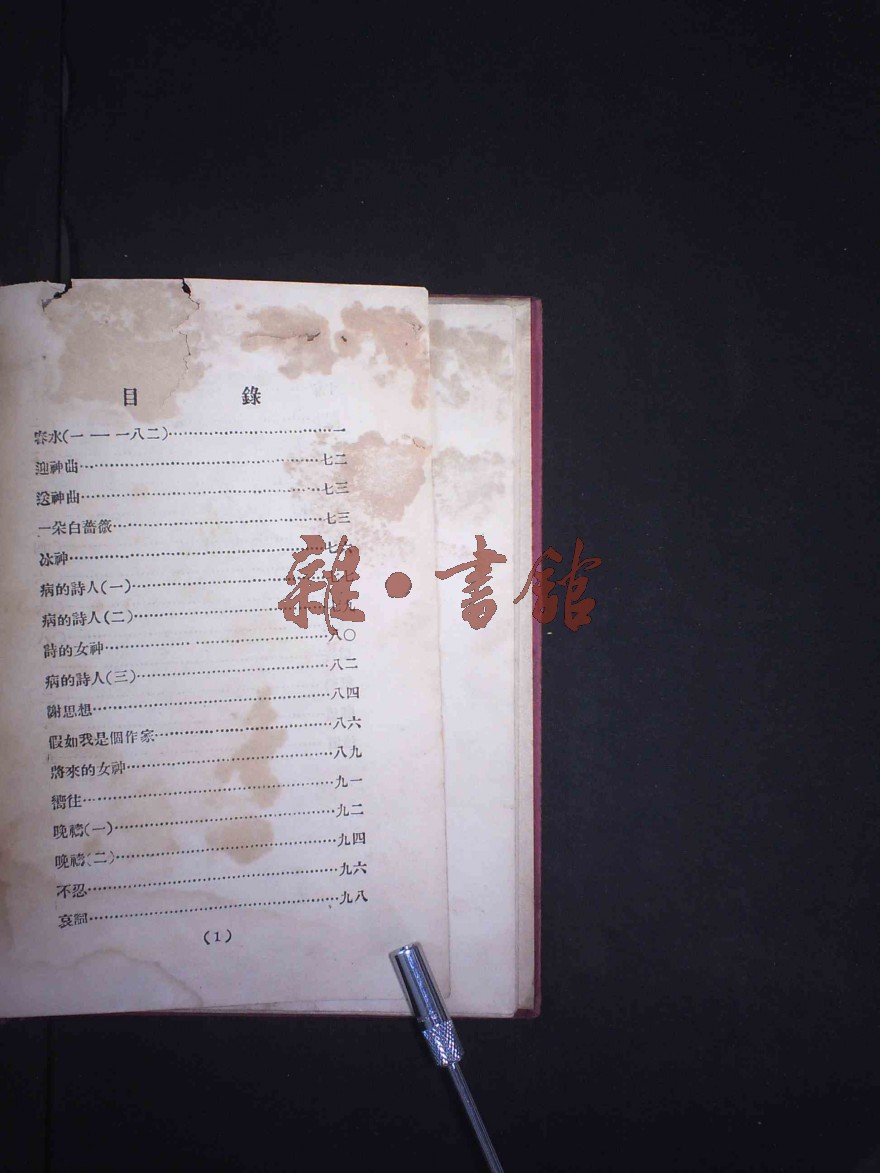 目 錄
春水(一 — 一八二)…………………………一
迎神曲…………………………七二
送神曲…………………………七三
一朵白薔薇…………………………七三
冰神…………………………七六
病的詩人(一)…………………………七七
病的詩人(二)…………………………七九
詩的女神…………………………八〇
病的詩人(三)…………………………八二
謝思想…………………………八四
假如我是個作家…………………………八六
將來的女神…………………………八九
嚮往…………………………九一
晚禱(一)…………………………九二
晚禱(二)…………………………九四
不忍…………………………九六
哀詞…………………………九八
(1)
雜·書館